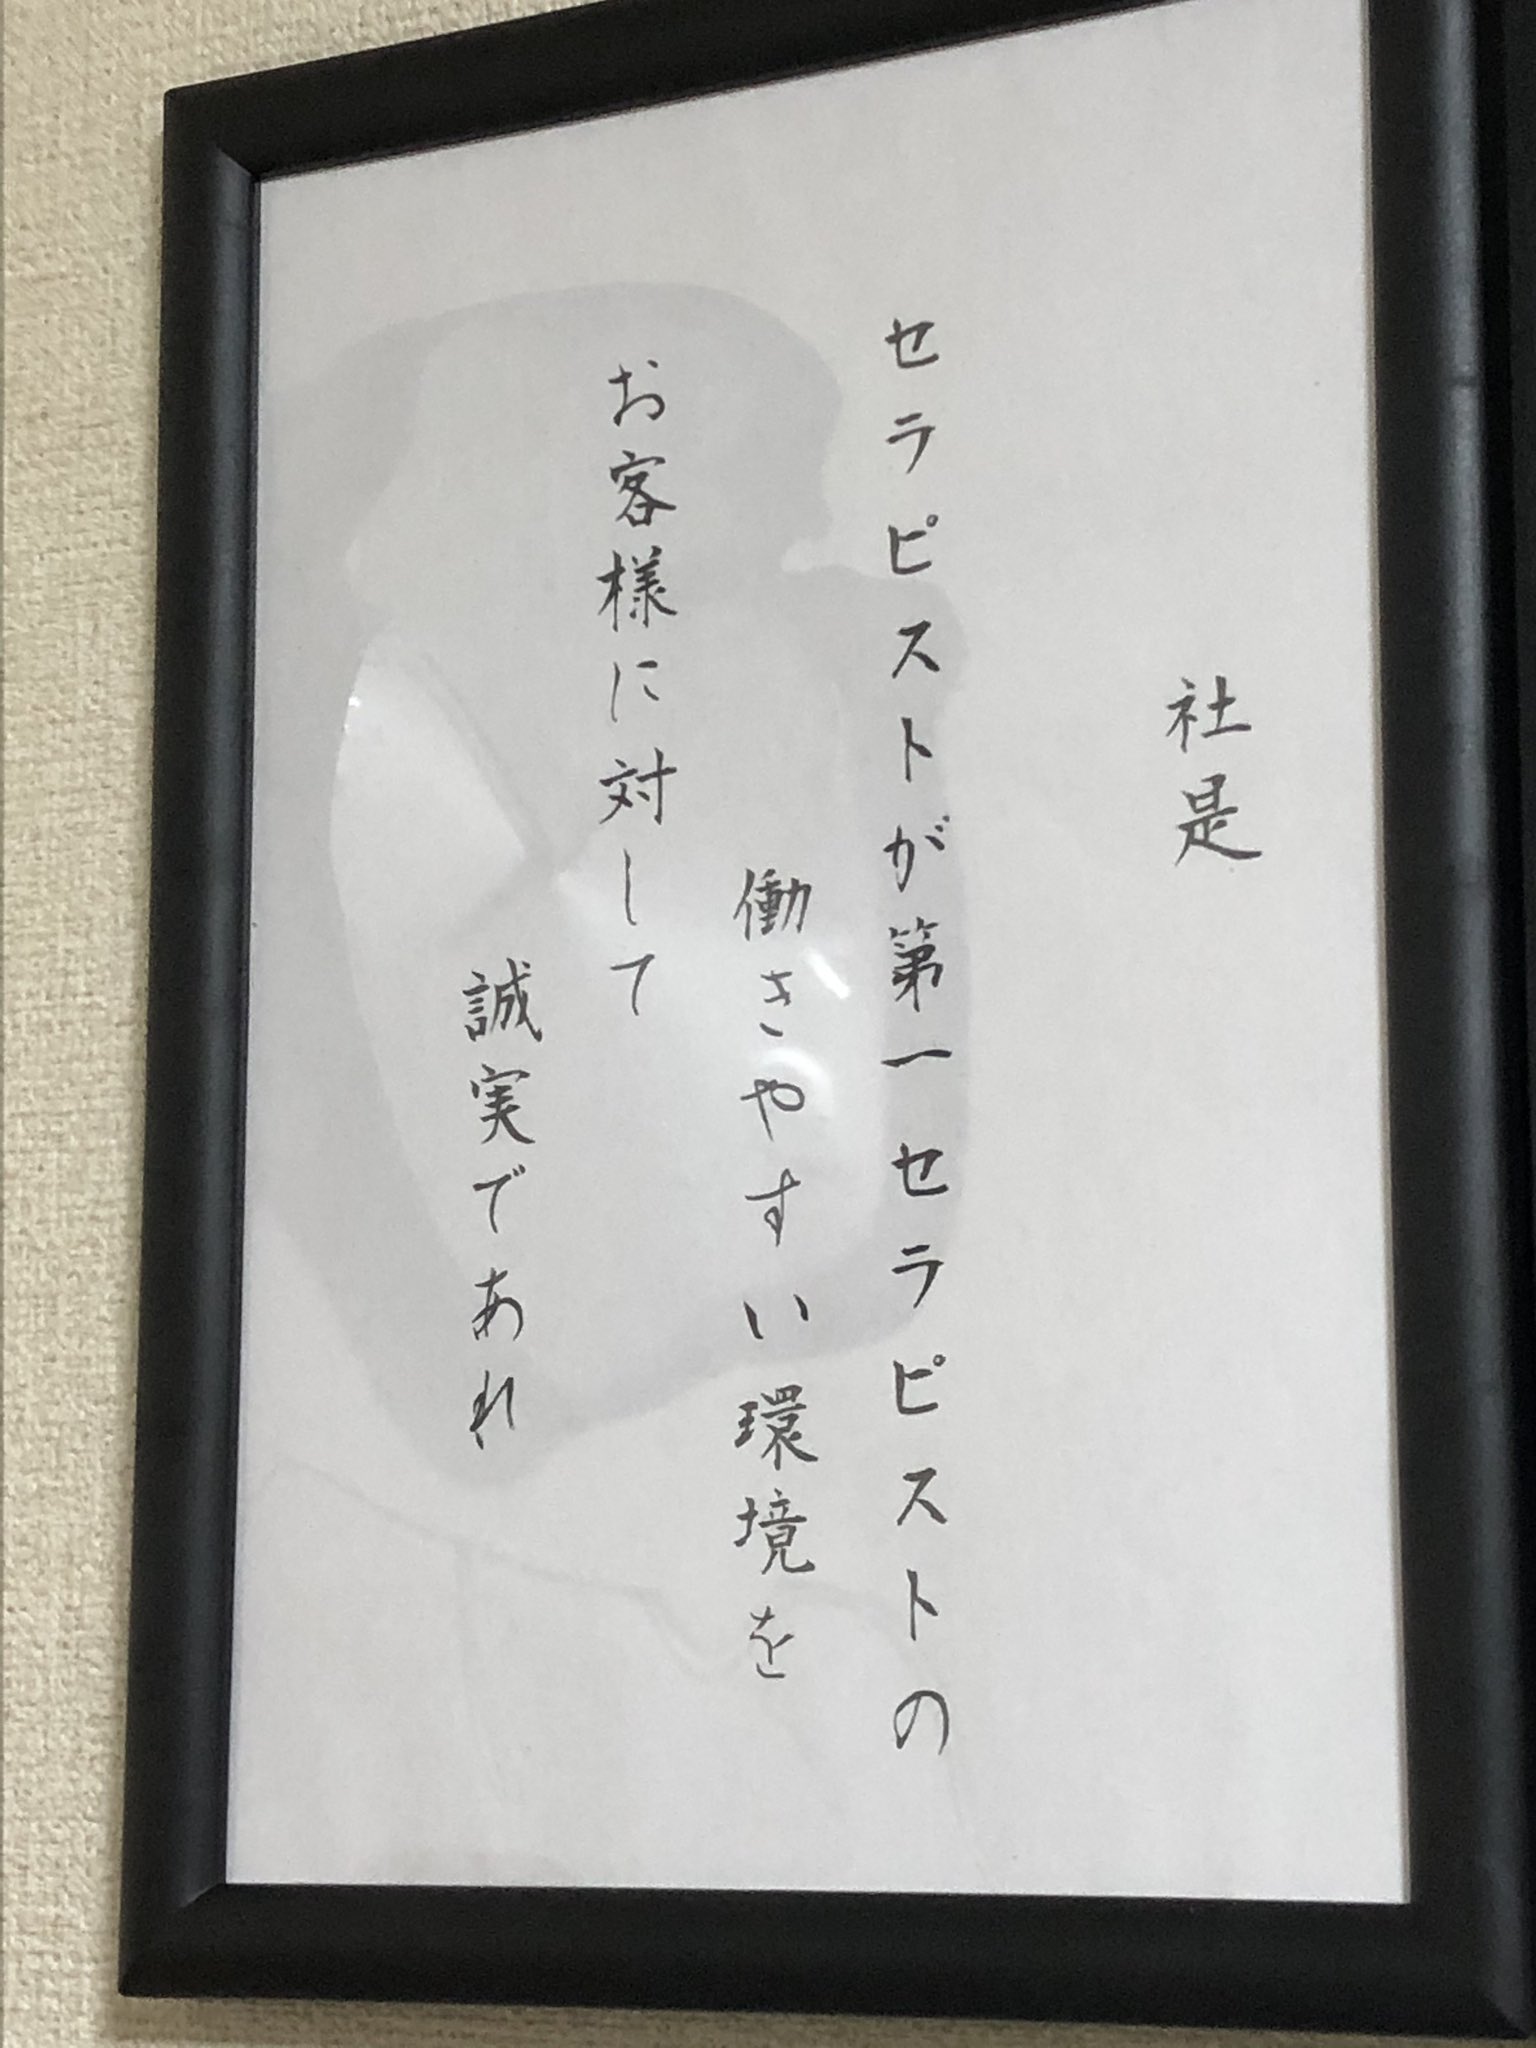 社是
セラピストが第一セラピストの
働きやすい環境を
お客様に対して
誠実であれ